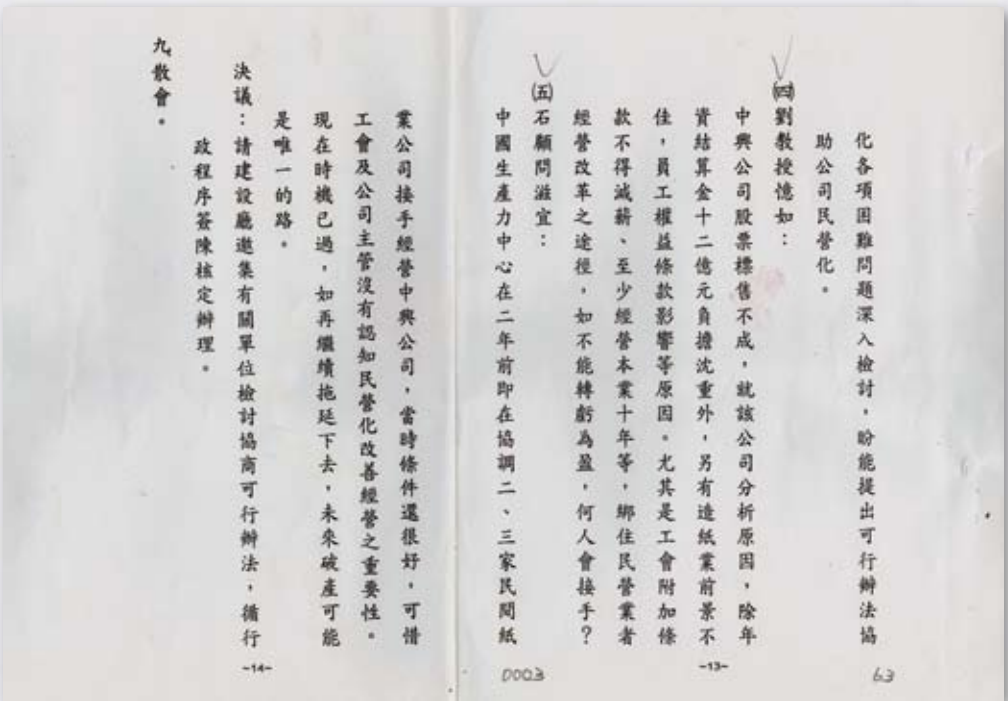 化各項困難問題深入檢討，盼能提出可行辦法協
助公司民營化。
㈣劉教授憶如：
中興公司股票標售不成，就該公司分析原因，除年
資結算金十二億元負擔沈重外，另有造紙業前景不
佳，員工權益條款影響等原因。尤其是工會附加條
款不得減薪、至少經營本業十年等，綁住民營業者
經營改革之途徑，如不能轉虧為盈，何人會接手？
㈤石顧問滋宜：
中國生產力中心在二年前即在協調二、三家民間紙
-13-
63
0003
業公司接手經營中興公司，當時條件還很好，可惜
工會及公司主管沒有認知民營化改善經營之重要性。
現在時機已過，如再繼續拖延下去，未來破產可能
是唯一的路。
決議：請建設廳邀集有關單位檢討協商可行辦法，循行
政程序簽陳核定辦理。
九、散會。
-14-